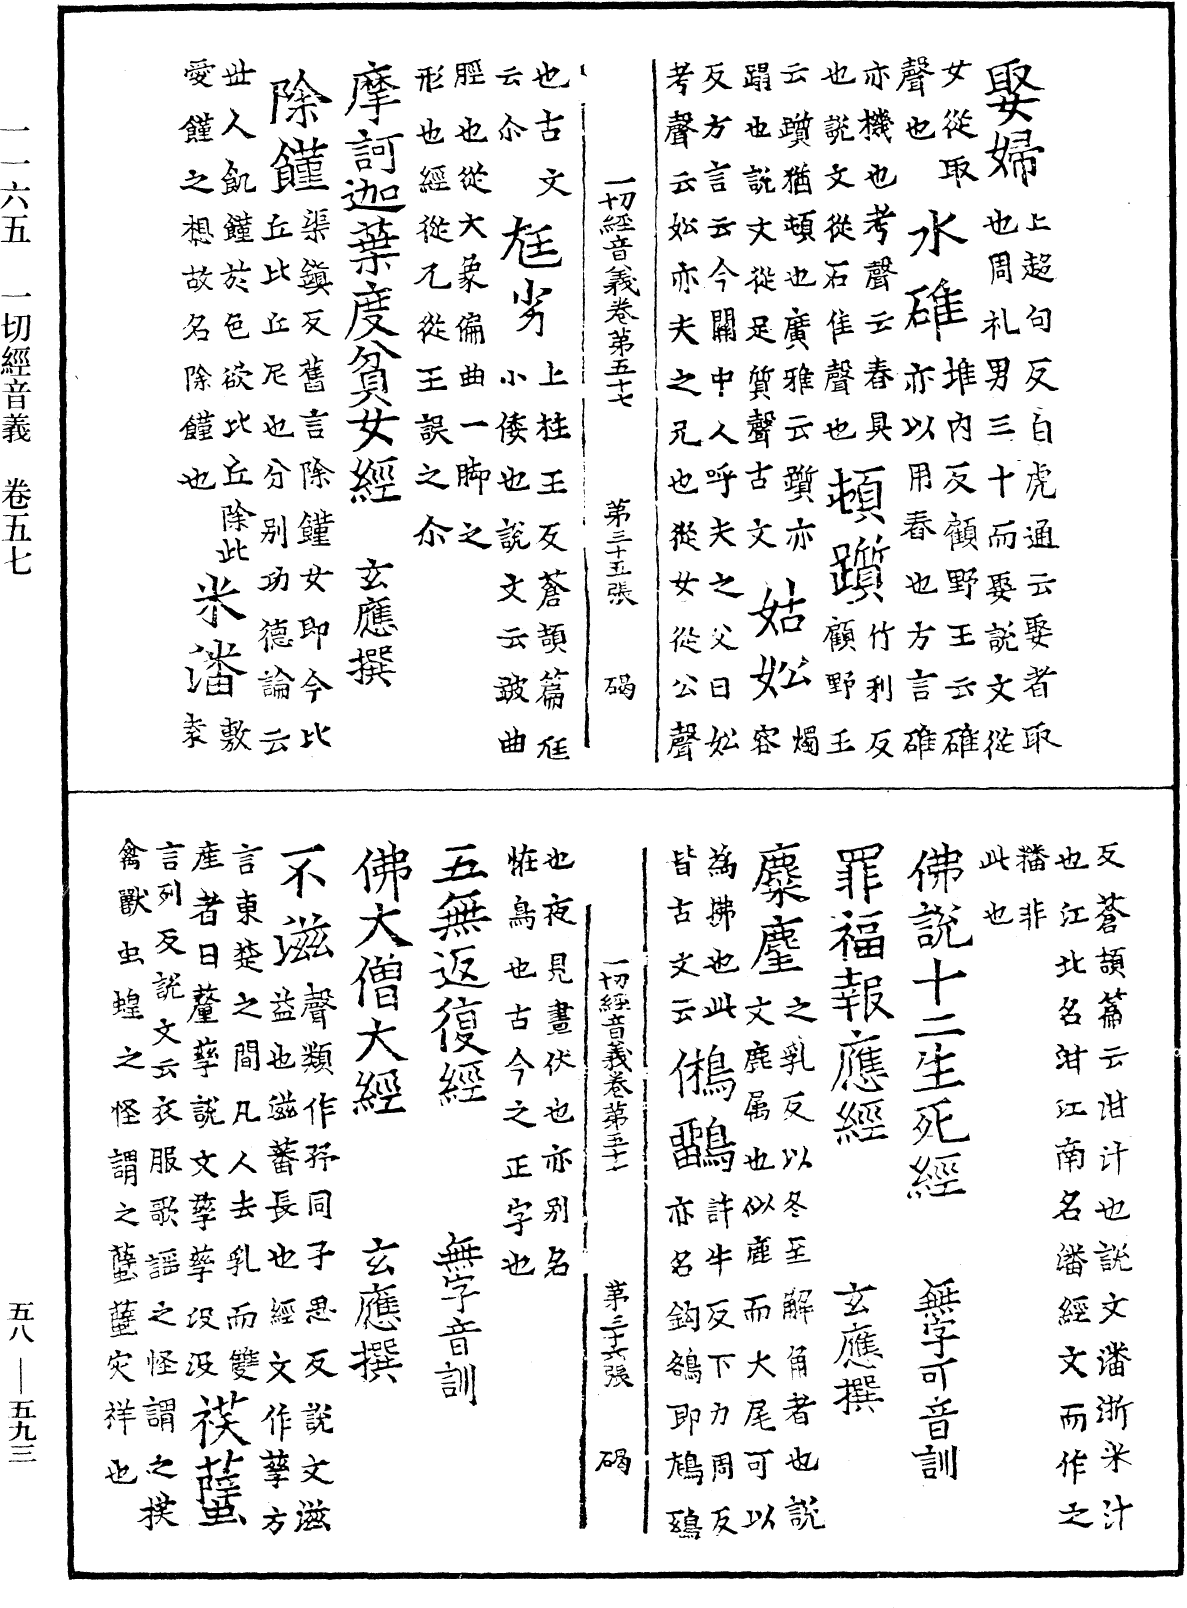 娶婦 上超句反白虎通云娶者取
也周礼男三十而娶説文從
女從取
聲也
水碓 堆内反顧野王云碓
亦以用舂也方言碓
亦機也考聲云舂具
也説文從石隹聲也
頓躓 竹利反
顧野王
云躓猶頓也廣雅云躓亦
蹋也説文從足質聲古文
姑妐 燭
容
反方言云今關中人呼夫之父曰妐
考聲云妐亦夫之兄也從女從公聲
一切經音義卷第五十七 第三十五張 碣
也古文
云尒
尪劣 上柱王反蒼頡篇尪
小倭也説文云跛曲
脛也從大象偏曲一脚之
形也經從兀從王誤之尒
摩訶迦葉度貧女經 玄應撰
除饉 渠鎮反舊言除饉女即今比
丘比丘尼也分別功德論云
世人飢饉於色欲比丘除此
愛饉之想故名除饉也
米潘 敷
袁
反蒼頡篇云泔汁也説文潘淅米汁
也江北名泔江南名潘經文而作之
非
此也
佛説十二生死經 無字可音訓
罪福報應經 玄應撰
麋麈 之乳反以冬至解角者也説
文鹿属也似鹿而大尾可以
為拂也此
皆古文云
鵂鶹 許牛反下力周反
亦名鈎鵅即鴟
一切經音義卷第五十七 第三十六張 碣
也夜見晝伏也亦别名
恠鳥也古今之正字也
五無返復經 無字音訓
佛大僧大經 玄應撰
不滋 聲類作孖同子思反説文滋
益也滋蕃長也經文作孳方
言東楚之間凡人去乳而雙
産者曰釐孳説文孳孳汲汲
蠥
言列反説文云衣服歌謡之怪謂之
禽獸虫蝗之怪謂之蠥蠥灾祥也
一一六五 一切經音義 卷五七
五八—五九三